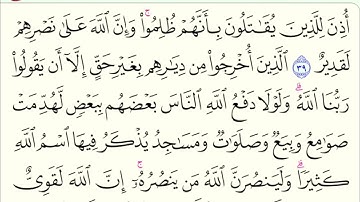 أُذِنَ لِلَّذِينَ يُقَٰتَلُونَ بِأَنَّهُمْ ظُلِمُوا۟ ۚ وَإِنَّ ٱللَّهَ عَلَىٰ نَصْرِهِمْ
لَقَدِيرٌ ﴿٣٩﴾ ٱلَّذِينَ أُخْرِجُوا۟ مِن دِيَٰرِهِم بِغَيْرِ حَقٍّ إِلَّآ أَن يَقُولُوا۟
رَبُّنَا ٱللَّهُ ۗ وَلَوْلَا دَفْعُ ٱللَّهِ ٱلنَّاسَ بَعْضَهُم بِبَعْضٍ لَّهُدِّمَتْ
صَوَٰمِعُ وَبِيَعٌ وَصَلَوَٰتٌ وَمَسَٰجِدُ يُذْكَرُ فِيهَا ٱسْمُ ٱللَّهِ
كَثِيرًا ۗ وَلَيَنصُرَنَّ ٱللَّهُ مَن يَنصُرُهُۥٓ ۗ إِنَّ ٱللَّهَ لَقَوِىٌّ